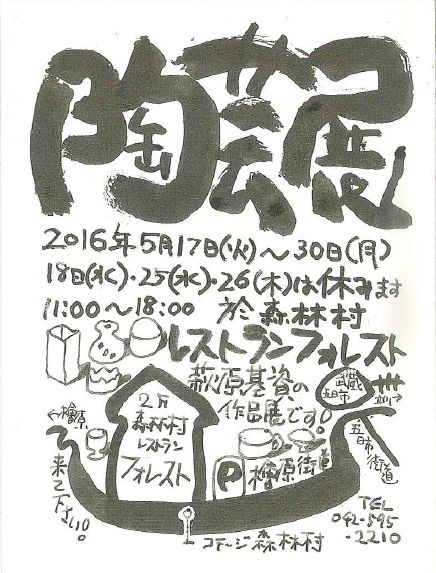 陶芸展
2016年5月17日(火)～30日(月)
18日(水)・25(水)・26(木)は休みます
11:00～18:00 於 森林村
レストランフォレスト
萩原基資の
作品展です!
武蔵
五日市
五日市街道
←檜原
2F
森林村
レストラン
フォレスト
P
檜原街道
来て下さい!
コテージ 森林村
TEL
042-595
-2210